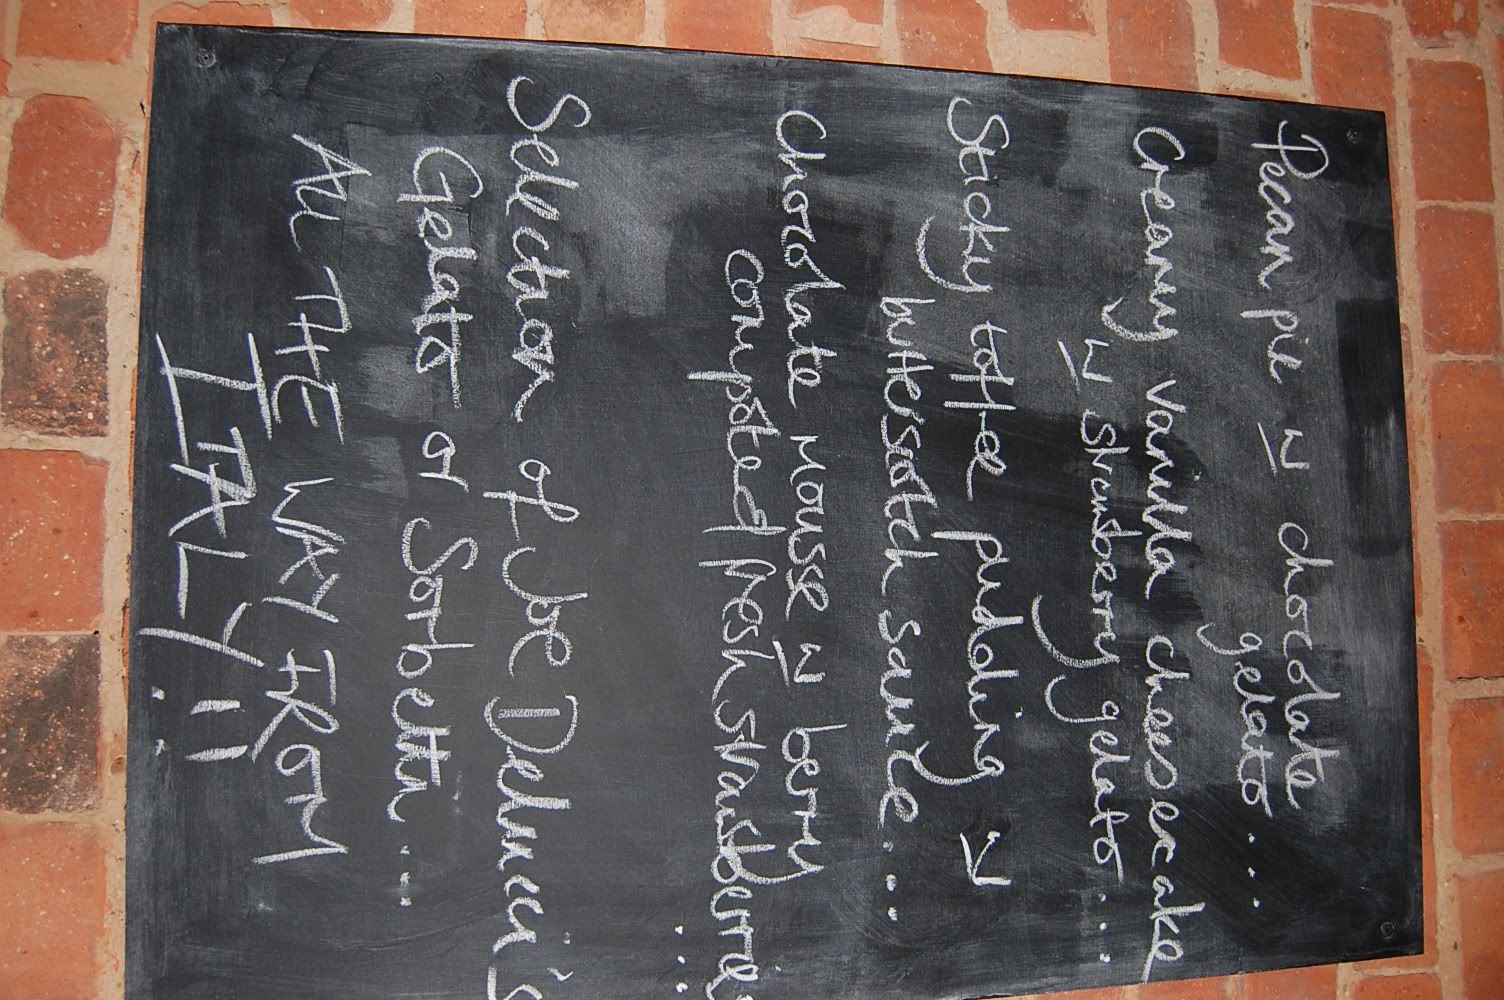 Pecan pie w chocolate
gelato...
Creamy vanilla cheesecake
w strawberry gelato...
Sticky toffee pudding w
butterscotch sauce...
Chocolate mouse w berry
compoted fresh strawberries
...
Selection of Joe Delucci's
Gelato or Sorbetti...
All THE WAY FROM
ITALY!!